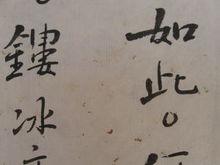 如此。
鏤冰